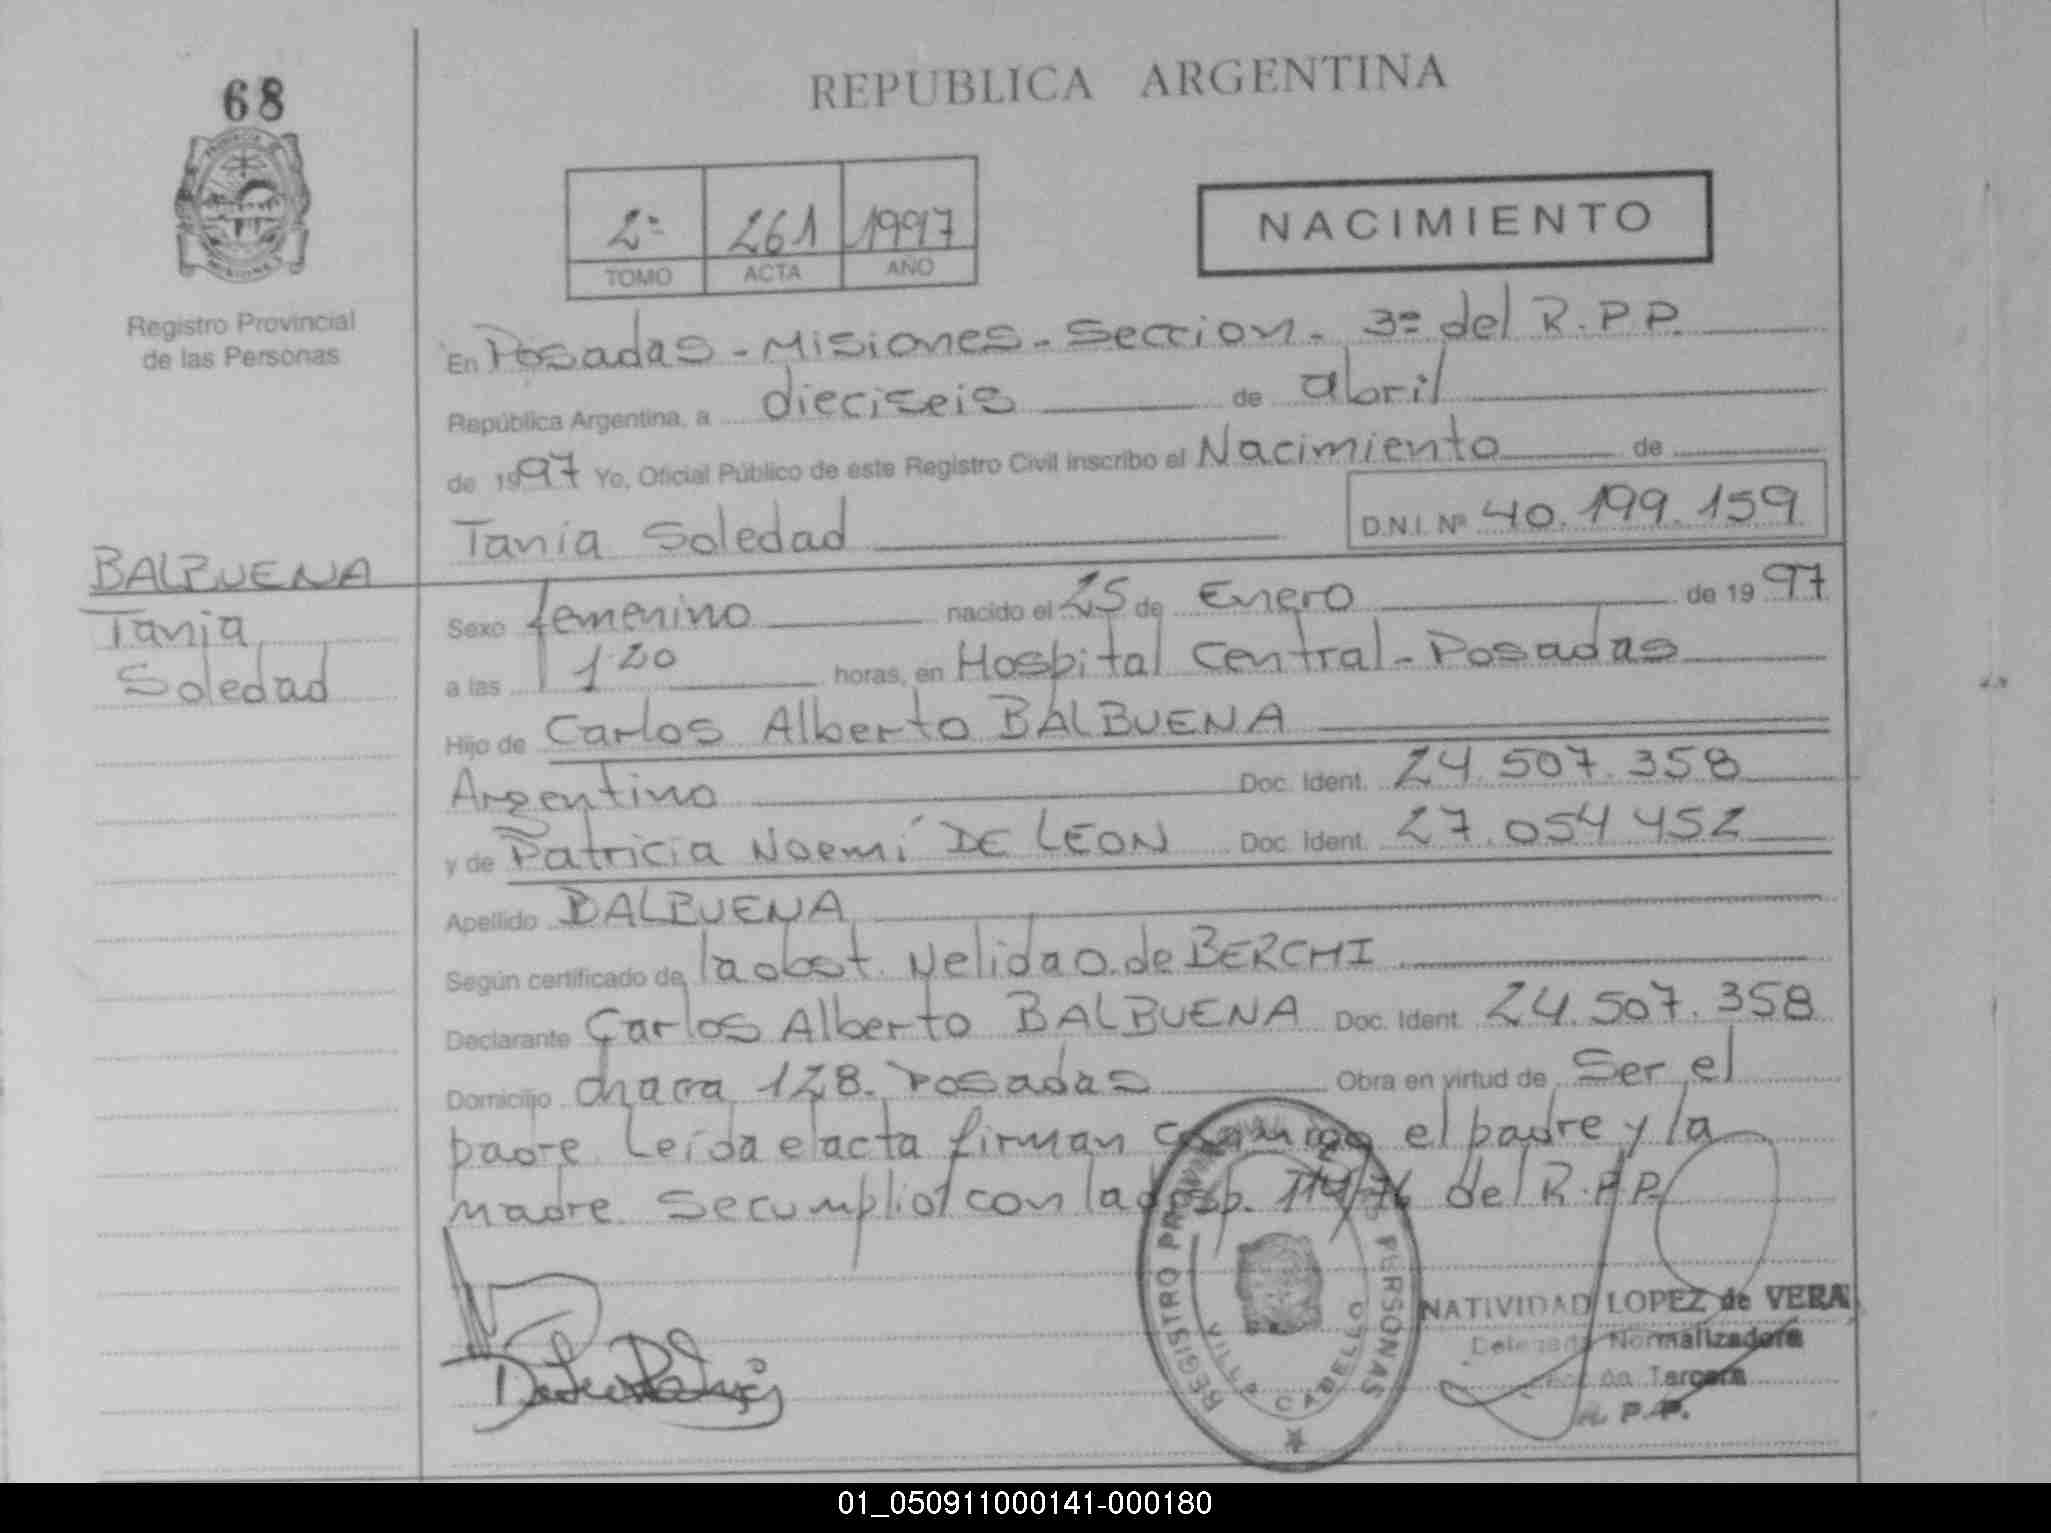 68
REPUBLICA ARGENTINA
2º 261 1997
TOMO ACTA AÑO
NACIMIENTO
Registro Provincial
de las Personas
En Posadas - Misiones - Seccion - 3º del R.P.P.
República Argentina, a dieciseis de abril
de 1997 Yo, Oficial Público de este Registro Civil inscribo el Nacimiento de
Tania Soledad D.N.I. Nº 40.199.159
BALBUENA
Tania
Soledad
Sexo femenino nacido el 25 de Enero de 1997
a las 1:20 horas, en Hospital Central - Posadas
Hijo de Carlos Alberto BALBUENA
Argentino Doc. Ident. 24.507.358
y de Patricia Noemí DE LEON Doc. Ident. 27.054.452
Apellido BALBUENA
Según certificado de la obst. Nelida O. de BERCHI
Declarante Carlos Alberto BALBUENA Doc. Ident. 24.507.358
Domicilio chacra 128. Posadas Obra en virtud de Ser el
padre. Leída el acta firman conmigo el padre y la
madre. Se cumplió con la disp. 114/76 del R.P.P.
REGISTRO PROVINCIAL DE LAS PERSONAS
VILLA CABELLO
NATIVIDAD LOPEZ de VERA
Delegada Normalizadora
Tercera
P.P.
01_050911000141-000180